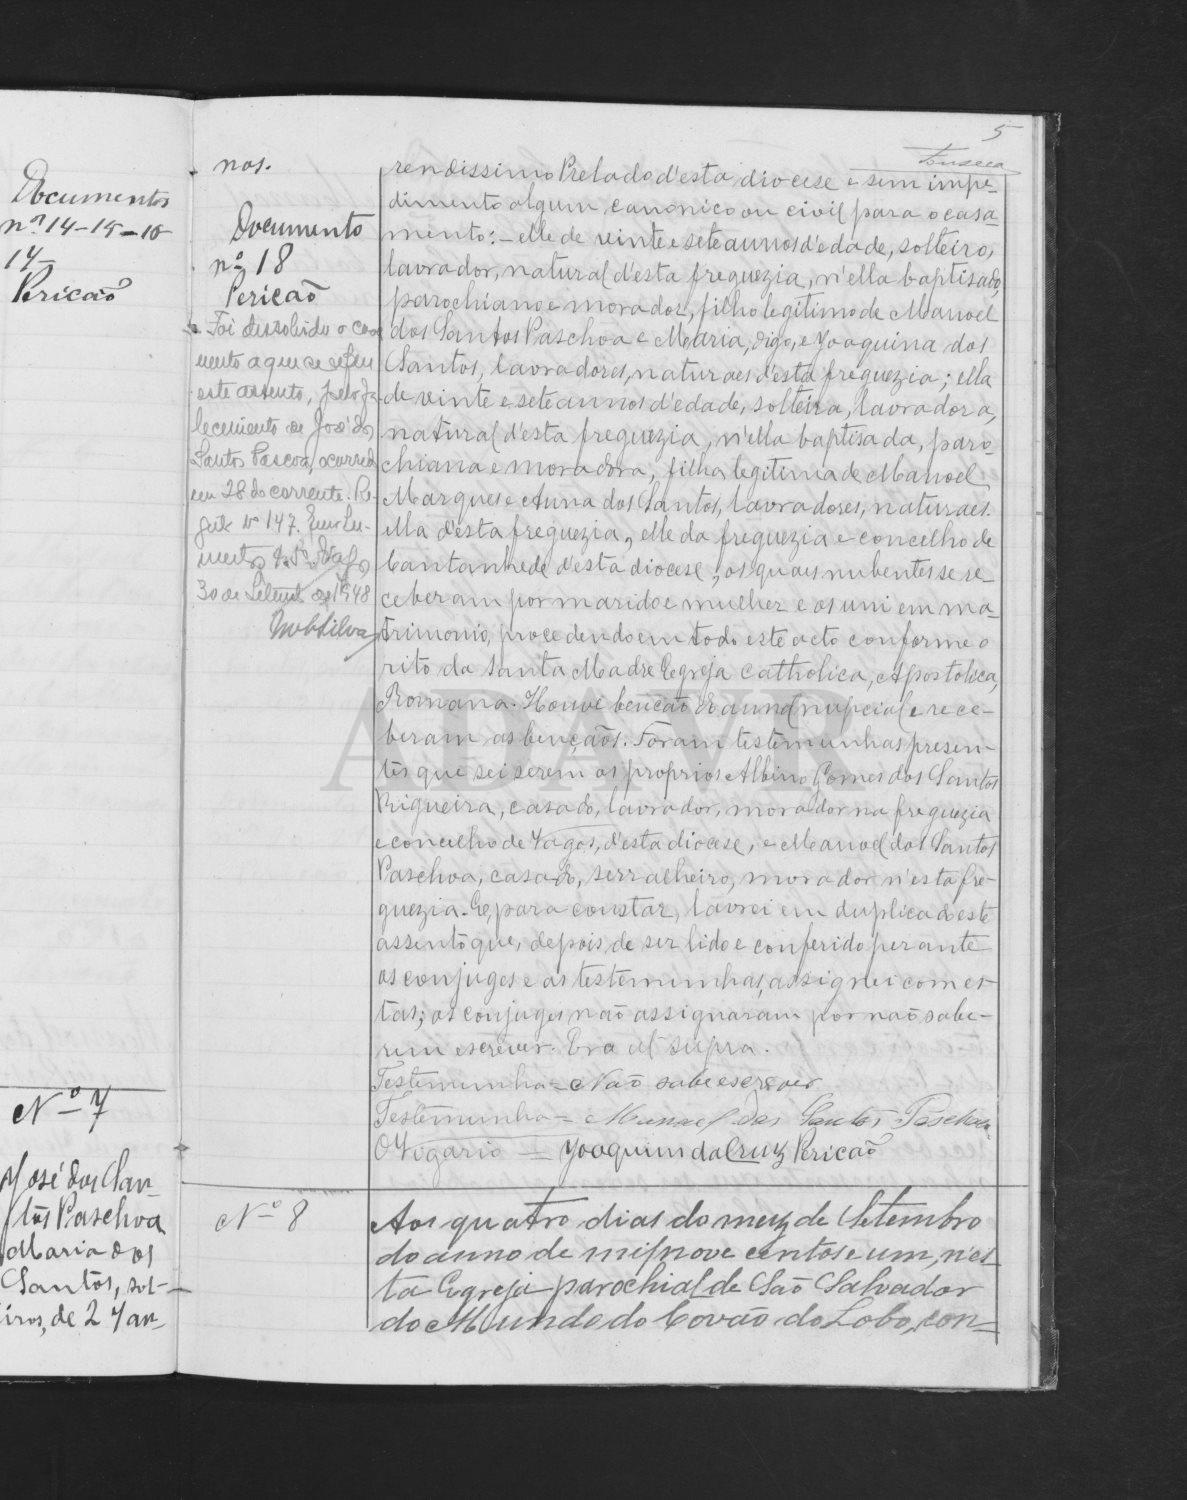 5
Fonseca
Documentos
nos 14-15-16
14-
Pericaõ
Nº 7
José dos San-
tos Paschoa
Maria dos
Santos, sol-
teiros, de 27 an-
nos.
Documento
nº 18
Pericaõ
Foi dissolvido o casa
mento a que se refere
este assento, pelo fa-
lecimento de José dos
Santos Pascoa, ocorrido
em 28 do corrente. Re-
gisto nº 147.
30 de Setemb. de 1948
rendissimo Prelado d'esta diocese e sem impe-
dimento algum canonico ou civil para o casa-
mento: - elle de vinte e sete annos d'edade, solteiro,
lavrador, natural d'esta freguezia, n'ella baptisado,
parochiano e morador, filho legitimo de Manoel
dos Santos Paschoa e Maria, digo, e Joaquina dos
Santos, lavradores, naturaes d'esta freguezia; ella
de vinte e sete annos d'edade, solteira, lavradora,
natural d'esta freguezia, n'ella baptisada, paro-
chiana e moradora, filha legitima de Manoel
Marques e Anna dos Santos, lavradores, naturaes
ella d'esta freguezia, elle da freguezia e concelho de
Cantanhede d'esta diocese; os quaes nubentes se re-
ceberam por marido e mulher e os uni em ma-
trimonio, procedendo em todo este acto conforme o
rito da Santa Madre Egreja Catholica, Apostolica,
Romana. Houve bencaõ nupcial e rece-
beram as bençaõs. Foram testemunhas presen-
tes que sei serem os proprios Albino Gomes dos Santos
Rigueira, casado, lavrador, morador na freguezia
e concelho de Vagos, d'esta diocese, e Manoel dos Santos
Paschoa, casado, serralheiro, morador n'esta fre-
guezia. E, para constar, lavrei em duplicado este
assento que, depois de ser lido e conferido perante
os conjuges e as testemunhas, assignei com es-
tas; os conjuges naõ assignaram por naõ sabe-
rem escrever. Era ut supra.
Testemunha = Naõ sabe escrever
Testemunha = Manoel dos Santos Paschoa
O Vigario = Joaquim da Cruz Pericaõ
Nº 8
Aos quatro dias do mez de Setembro
do anno de mil nove centos e um, n'es-
ta Egreja parochial de Saõ Salvador
do Mundo do Covaõ do Lobo, con-
ADAVR